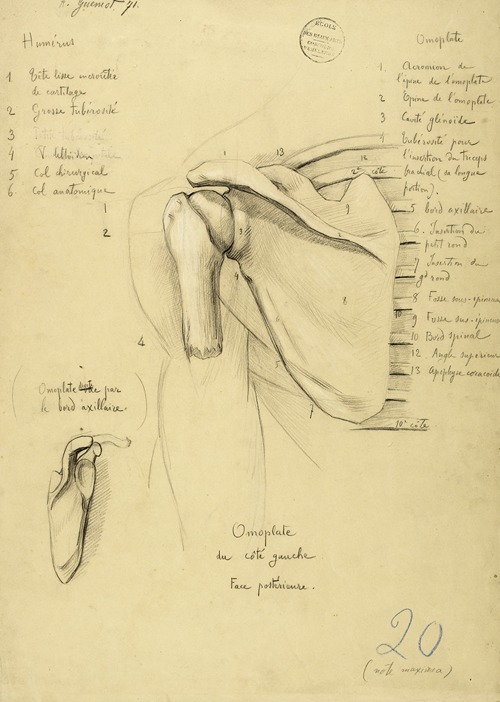 A. Guéniot 91.
Humérus
1 Tête lisse incrustée
de cartilage
2 Grosse tubérosité
3
4 V deltoïdien
5 Col chirurgical
6 Col anatomique
1
2
4
ÉCOLE
DES BEAUX ARTS
Omoplate
1. Acromion de
l'épine de l'omoplate
2 Epine de l'omoplate
3 Cavité glénoïde
4 Tubérosité pour
l'insertion du triceps
brachial (sa longue
portion).
5 bord axillaire
6. Insertion du
petit rond
7 Insertion du
gd rond
8 Fosse sous-épineuse
9 Fosse sus-épineuse
10 Bord spinal
12 Angle supérieur
13 Apophyse coracoïde
1
13
12
2e côte
9
3
2
4
8
10
5
7
10e côte
Omoplate vue par
le bord axillaire.
Omoplate
du côté gauche
Face postérieure.
20
(note maxima)